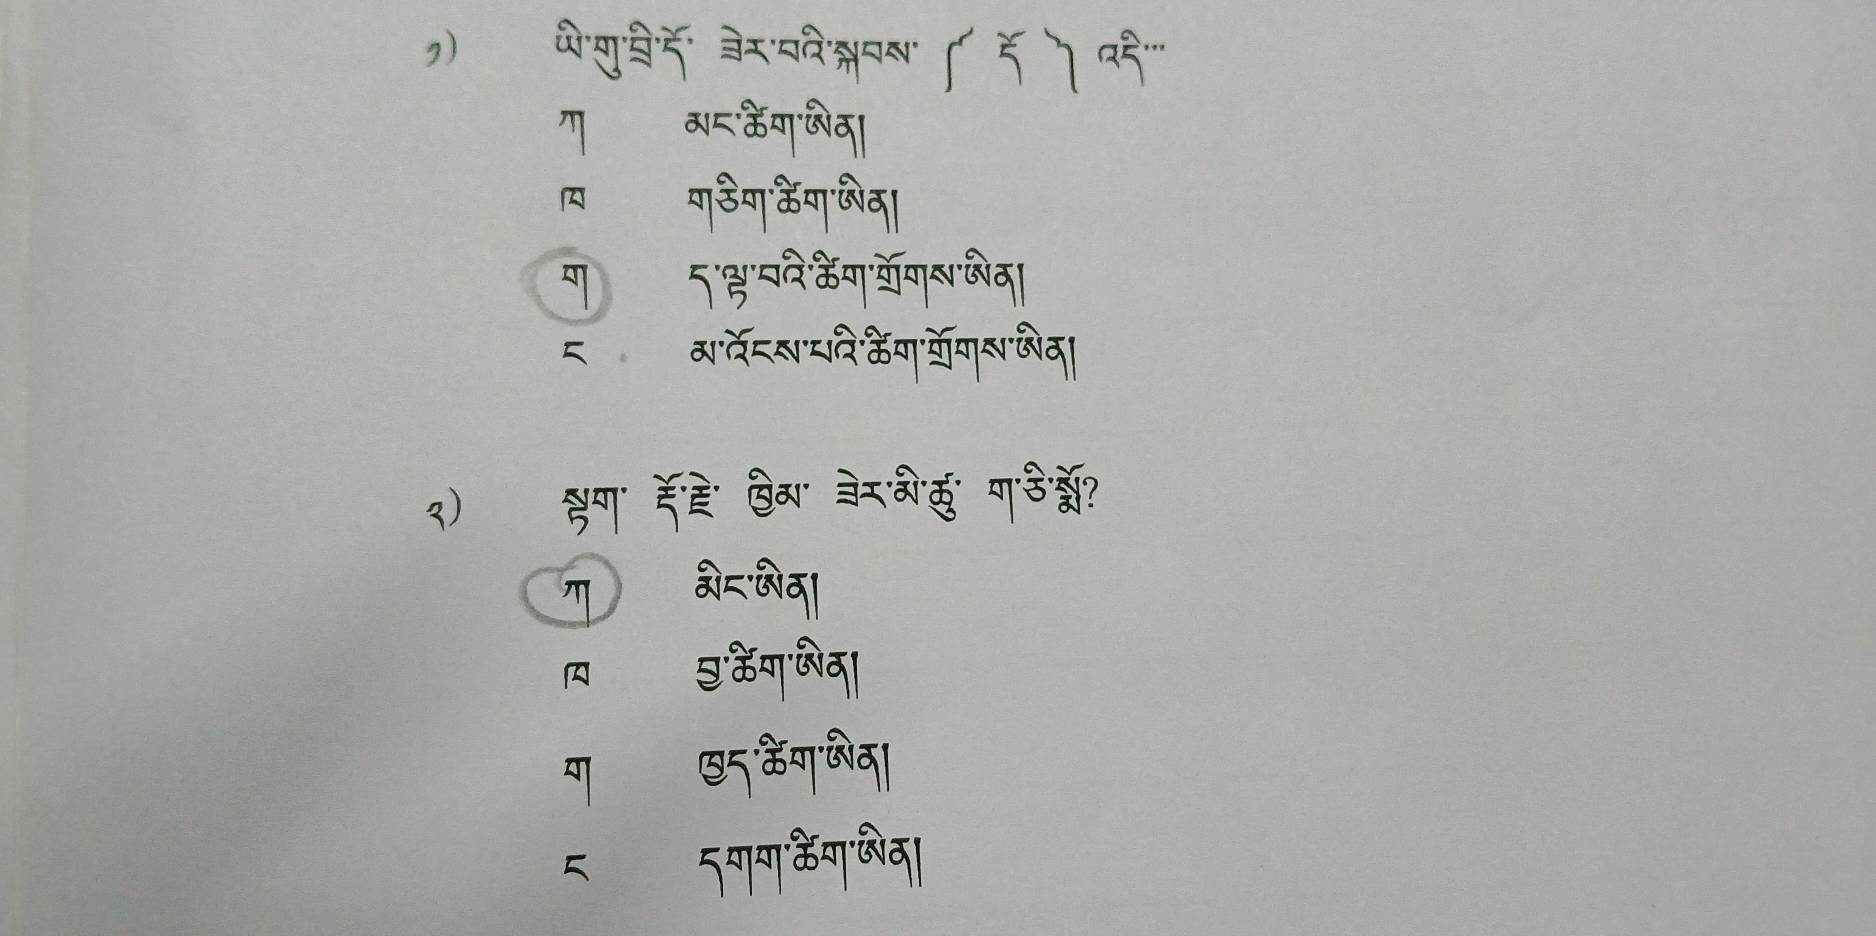 ༡) ཡི་གུ་བྲི་དོ་ ཟེར་བའི་སྐབས་ ༼ དོ ༽ འདི་་་
ཀ མང་ཚིག་ཨིན།
ཁ གཅིག་ཚིག་ཨིན།
ག ད་ལྟ་བའི་ཚིག་གྲོགས་ཨིན།
ང མ་འོངས་པའི་ཚིག་གྲོགས་ཨིན།
༢) སྟག་ རྡོ་རྗེ་ ཁྱིམ་ ཟེར་མི་ཚུ་ ག་ཅི་སྨོ?
ཀ མིང་ཨིན།
ཁ བྱ་ཚིག་ཨིན།
ག ཁྱད་ཚིག་ཨིན།
ང དགག་ཚིག་ཨིན།